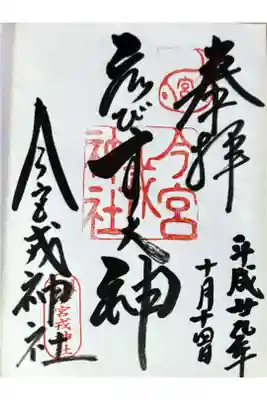 奉拝
平成廿九年
十月十四日
ゑびす大神
今宮戎神社
宮
今宮
戎
神社
今宮戎神社